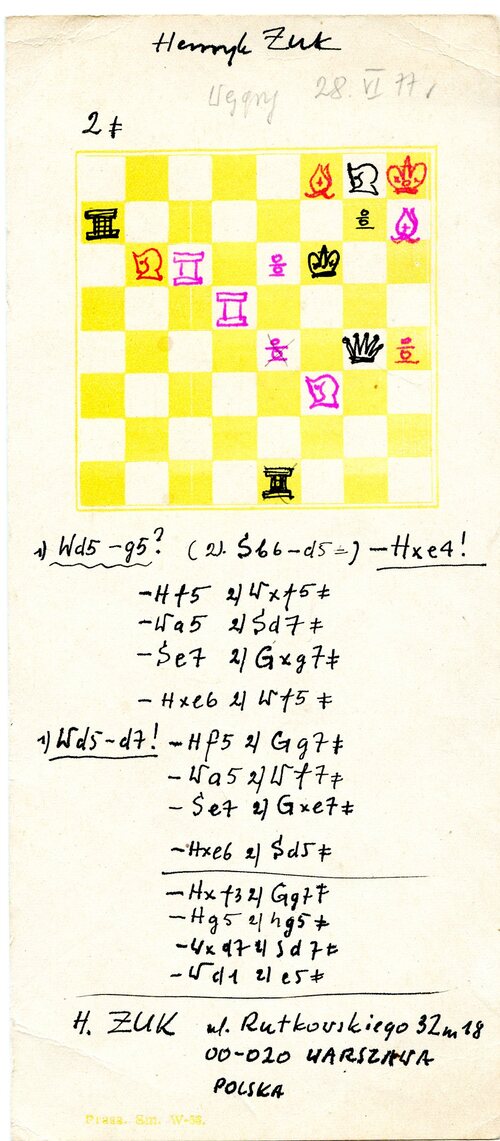 Henryk ŻUK
Węgry 28. VI 77.
2 ‡
1) Wd5-g5? (2). Sb6-d5=) -Hxe4!
-Hf5 2) Wxf5‡
-Wa5 2) Sd7‡
-Se7 2) Gxg7‡
-Hxe6 2) Wf5‡
1) Wd5-d7! -Hf5 2) Gg7‡
-Wa5 2) Wf7‡
-Se7 2) Gxe7‡
-Hxe6 2) Sd5‡
-Hxf3 2) Gg7‡
-Hg5 2) hg5‡
-Wxd7 2) Sd7‡
-Wd1 2) e5‡
H. ŻUK ul. Rutkowskiego 32 m 18
00-020 WARSZAWA
POLSKA